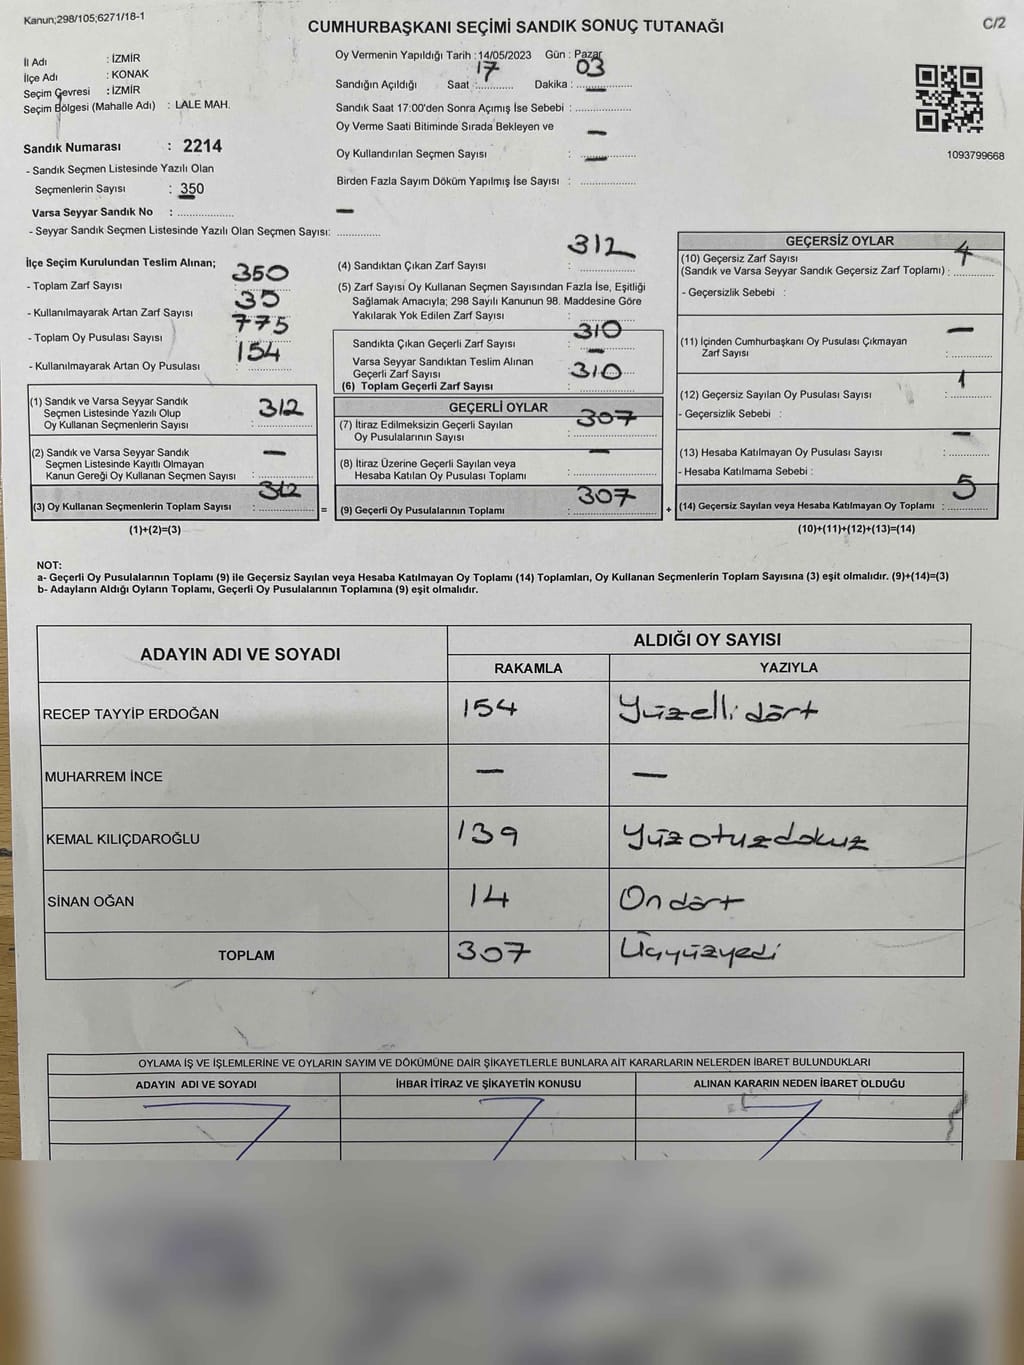 Kanun;298/105;6271/18-1
CUMHURBAŞKANI SEÇİMİ SANDIK SONUÇ TUTANAĞI
C/2
İl Adı : İZMİR
İlçe Adı : KONAK
Seçim Çevresi : İZMİR
Seçim Bölgesi (Mahalle Adı) : LALE MAH.
Sandık Numarası : 2214
- Sandık Seçmen Listesinde Yazılı Olan
Seçmenlerin Sayısı : 350
Varsa Seyyar Sandık No : ..................
- Seyyar Sandık Seçmen Listesinde Yazılı Olan Seçmen Sayısı: ............. —
Oy Vermenin Yapıldığı Tarih : 14/05/2023 Gün : Pazar
Sandığın Açıldığı Saat : 17 Dakika : 03
Sandık Saat 17:00'den Sonra Açımış İse Sebebi : ..................
Oy Verme Saati Bitiminde Sırada Bekleyen ve —
Oy Kullandırılan Seçmen Sayısı : —
Birden Fazla Sayım Döküm Yapılmış İse Sayısı : ..................
1093799668
İlçe Seçim Kurulundan Teslim Alınan;
- Toplam Zarf Sayısı : 350
- Kullanılmayarak Artan Zarf Sayısı : 35
- Toplam Oy Pusulası Sayısı : 775
- Kullanılmayarak Artan Oy Pusulası : 154
(1) Sandık ve Varsa Seyyar Sandık
Seçmen Listesinde Yazılı Olup
Oy Kullanan Seçmenlerin Sayısı : 312
(2) Sandık ve Varsa Seyyar Sandık
Seçmen Listesinde Kayıtlı Olmayan
Kanun Gereği Oy Kullanan Seçmen Sayısı : —
(3) Oy Kullanan Seçmenlerin Toplam Sayısı : 312
(1)+(2)=(3)
(4) Sandıktan Çıkan Zarf Sayısı : 312
(5) Zarf Sayısı Oy Kullanan Seçmen Sayısından Fazla İse, Eşitliği
Sağlamak Amacıyla; 298 Sayılı Kanunun 98. Maddesine Göre
Yakılarak Yok Edilen Zarf Sayısı :
Sandıkta Çıkan Geçerli Zarf Sayısı : 310
Varsa Seyyar Sandıktan Teslim Alınan
Geçerli Zarf Sayısı : —
(6) Toplam Geçerli Zarf Sayısı : 310
GEÇERLİ OYLAR
(7) İtiraz Edilmeksizin Geçerli Sayılan
Oy Pusulalarının Sayısı : 307
(8) İtiraz Üzerine Geçerli Sayılan veya
Hesaba Katılan Oy Pusulası Toplamı : —
= (9) Geçerli Oy Pusulalarının Toplamı : 307
GEÇERSİZ OYLAR
(10) Geçersiz Zarf Sayısı
(Sandık ve Varsa Seyyar Sandık Geçersiz Zarf Toplamı) : 4
- Geçersizlik Sebebi :
(11) İçinden Cumhurbaşkanı Oy Pusulası Çıkmayan
Zarf Sayısı : —
(12) Geçersiz Sayılan Oy Pusulası Sayısı : 1
- Geçersizlik Sebebi :
(13) Hesaba Katılmayan Oy Pusulası Sayısı : —
- Hesaba Katılmama Sebebi :
+ (14) Geçersiz Sayılan veya Hesaba Katılmayan Oy Toplamı : 5
(10)+(11)+(12)+(13)=(14)
NOT:
a- Geçerli Oy Pusulalarının Toplamı (9) ile Geçersiz Sayılan veya Hesaba Katılmayan Oy Toplamı (14) Toplamları, Oy Kullanan Seçmenlerin Toplam Sayısına (3) eşit olmalıdır. (9)+(14)=(3)
b- Adayların Aldığı Oyların Toplamı, Geçerli Oy Pusulalarının Toplamına (9) eşit olmalıdır.
ADAYIN ADI VE SOYADI ALDIĞI OY SAYISI
RAKAMLA YAZIYLA
RECEP TAYYİP ERDOĞAN 154 Yüzellidört
MUHARREM İNCE — —
KEMAL KILIÇDAROĞLU 139 Yüzotuzdokuz
SİNAN OĞAN 14 Ondört
TOPLAM 307 Üçyüzyedi
OYLAMA İŞ VE İŞLEMLERİNE VE OYLARIN SAYIM VE DÖKÜMÜNE DAİR ŞİKAYETLERLE BUNLARA AİT KARARLARIN NELERDEN İBARET BULUNDUKLARI
ADAYIN ADI VE SOYADI İHBAR İTİRAZ VE ŞİKAYETİN KONUSU ALINAN KARARIN NEDEN İBARET OLDUĞU